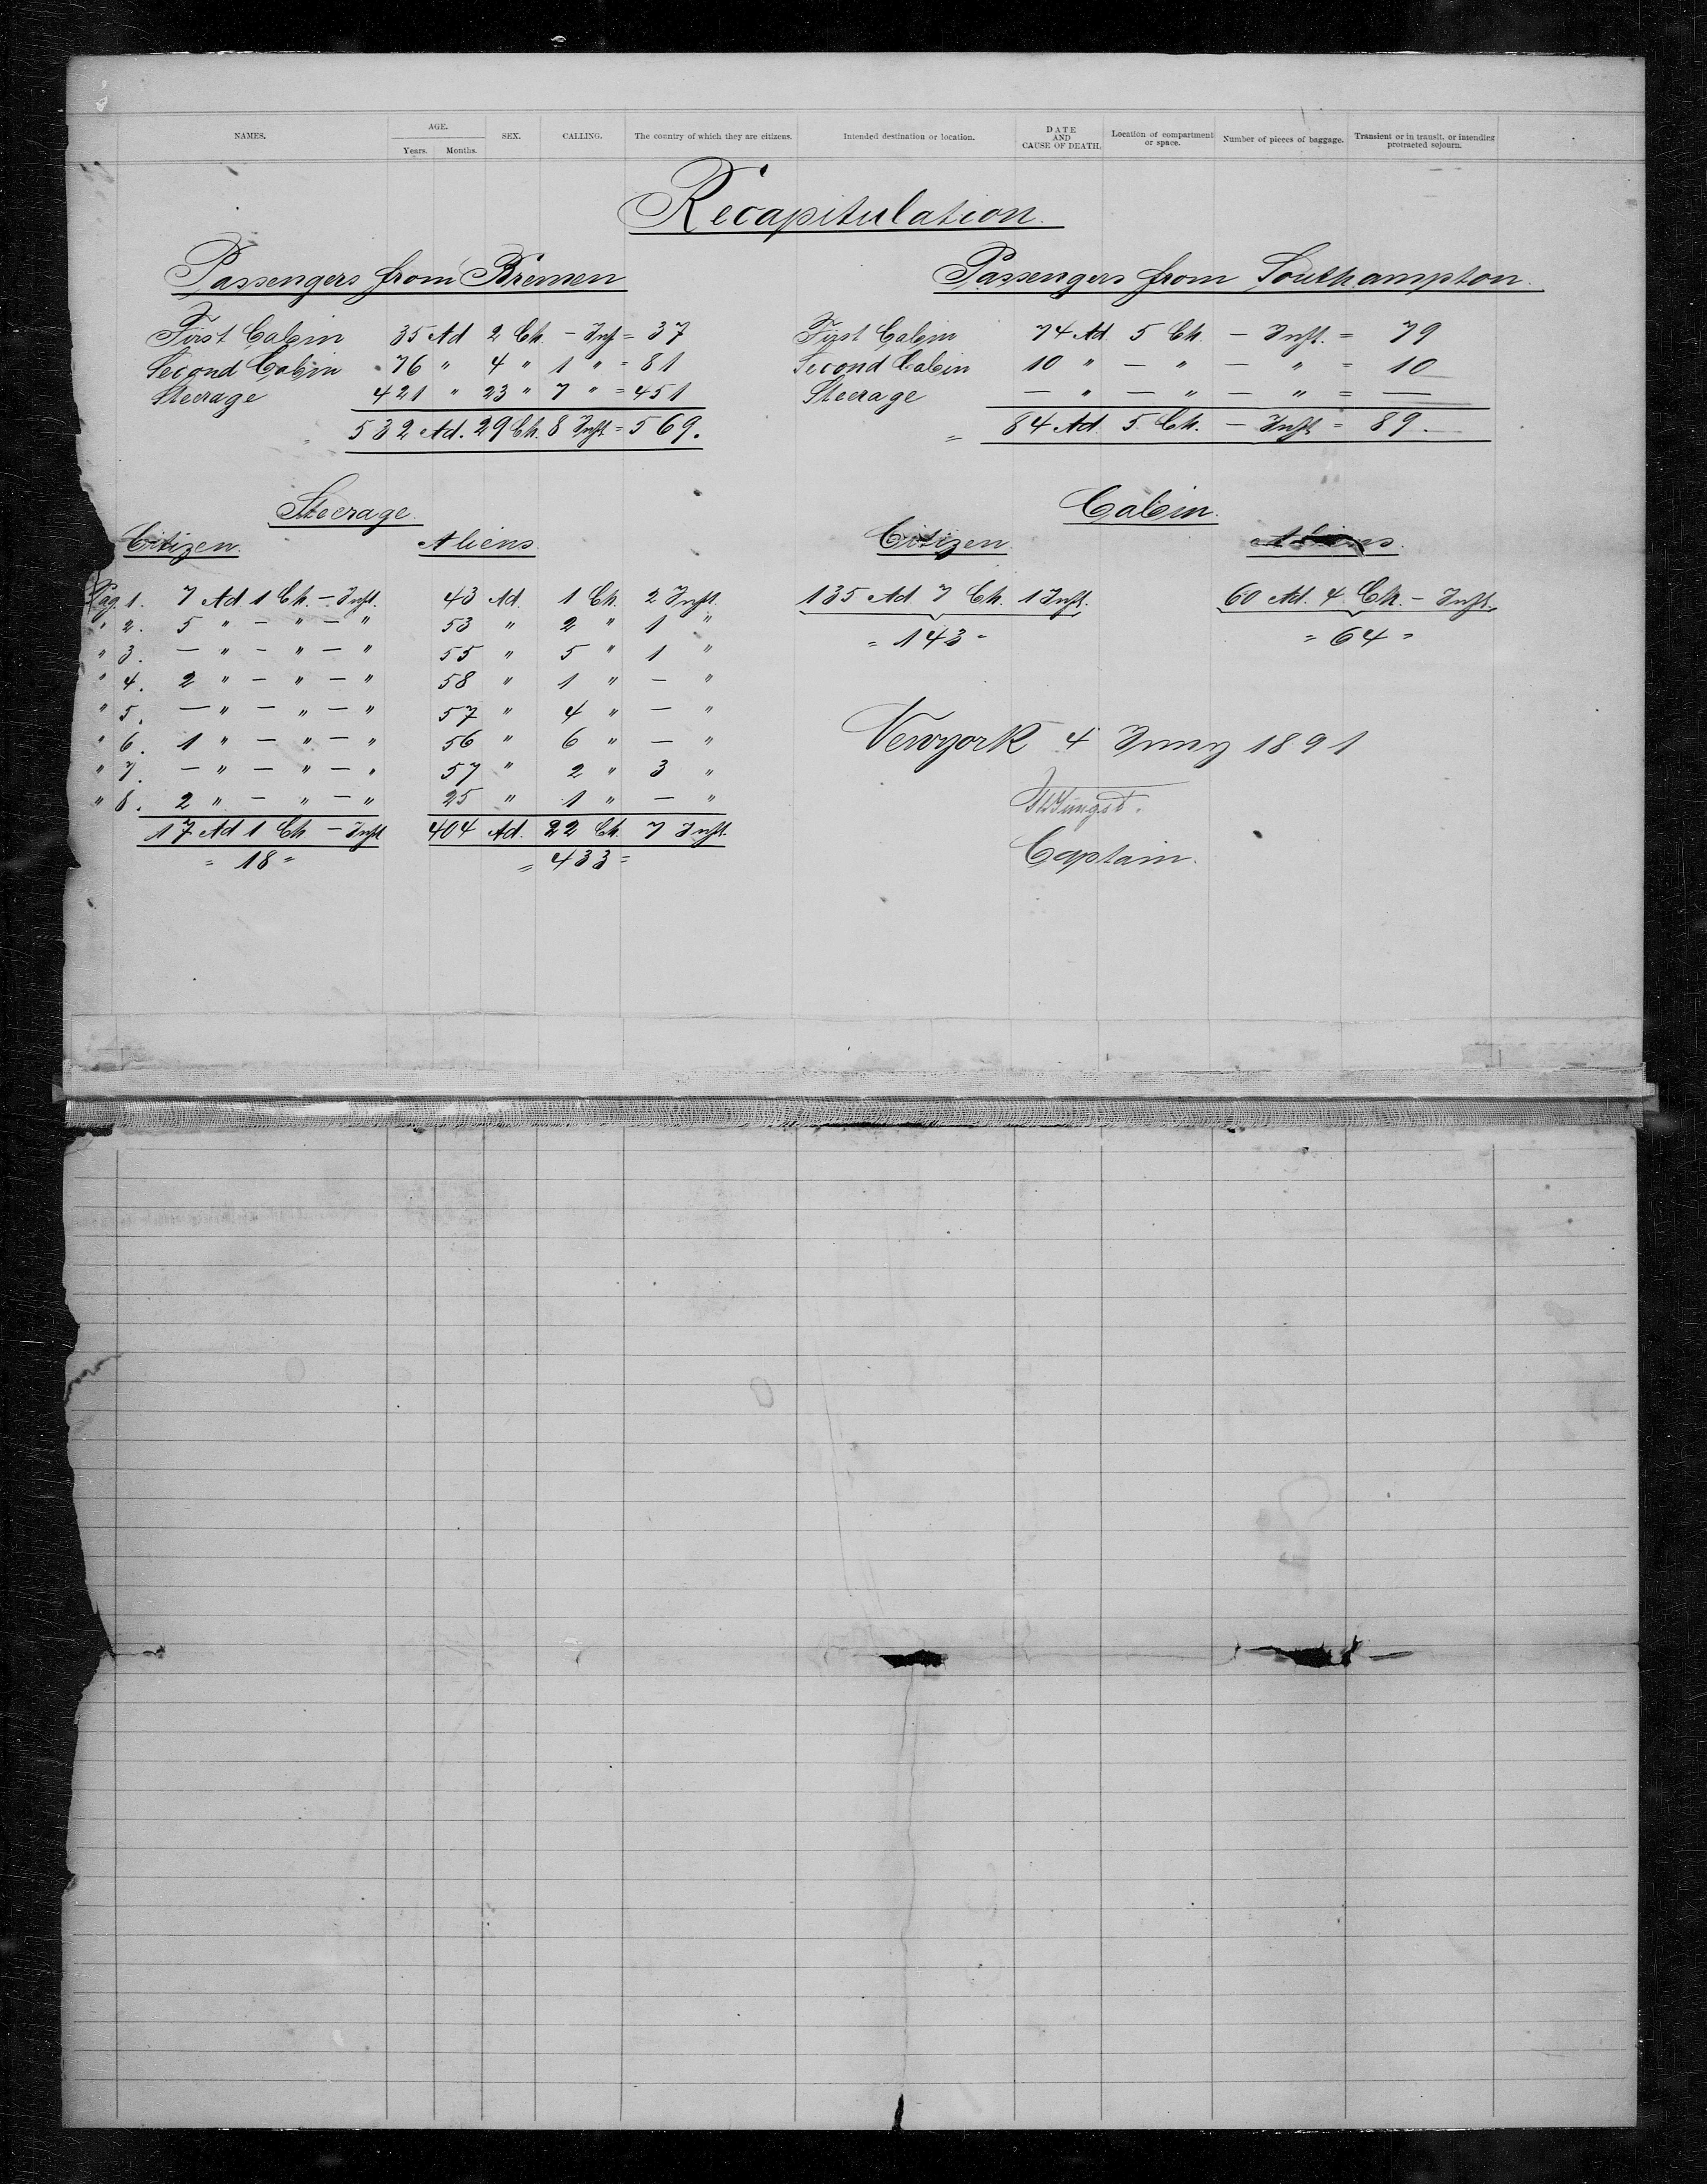 NAMES. AGE. Years. Months. SEX. CALLING. The country of which they are citizens. Intended destination or location. DATE AND CAUSE OF DEATH. Location of compartment or space. Number of pieces of baggage. Transient or in transit, or intending protracted sojourn.
Recapitulation.
Passengers from Bremen
First Cabin 35 Ad 2 Ch. - Inf = 37
Second Cabin 76 " 4 " 1 " = 81
Steerage 421 " 23 " 7 " = 451
532 Ad. 29 Ch. 8 Inft = 569.
Passengers from Southampton.
First Cabin 74 Ad. 5 Ch. - Inft. = 79
Second Cabin 10 " - " - " = 10
Steerage - " - " - " = -
= 84 Ad. 5 Ch. - Inft = 89.
Steerage.
Citizen. Aliens.
Pag. 1. 7 Ad 1 Ch. - Inft. 43 Ad. 1 Ch. 2 Inft.
" 2. 5 " - " - " 53 " 2 " 1 "
" 3. - " - " - " 55 " 5 " 1 "
" 4. 2 " - " - " 58 " 1 " - "
" 5. - " - " - " 57 " 4 " - "
" 6. 1 " - " - " 56 " 6 " - "
" 7. - " - " - " 57 " 2 " 3 "
" 8. 2 " - " - " 25 " 1 " - "
17 Ad 1 Ch - Inft 404 Ad. 22 Ch. 7 Inft.
= 18 = = 433 =
Cabin.
Citizen. Aliens.
135 Ad 7 Ch. 1 Inft. 60 Ad. 4 Ch. - Inft.
= 143 = = 64 =
Newyork 4 Juny 1891
Captain.